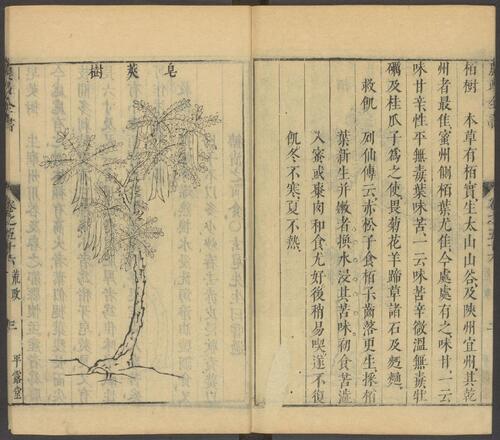 栢樹 本草有栢實生太山山谷及陝州宜州其乾
州者最佳蜜州側栢葉尤佳今處處有之味甘一云
味甘辛性平無毒葉味苦一云味苦辛微溫無毒牡
礪及桂瓜子為之使畏菊花羊蹄草諸石及麪麴
救飢 列仙傳云赤松子食栢子齒落更生採栢
葉新生并嫩者換水浸其苦味初食苦澁
入蜜或棗肉和食尤好後稍易喫遂不復
飢冬不寒夏不熱
皂莢樹
荒政
三
平露堂